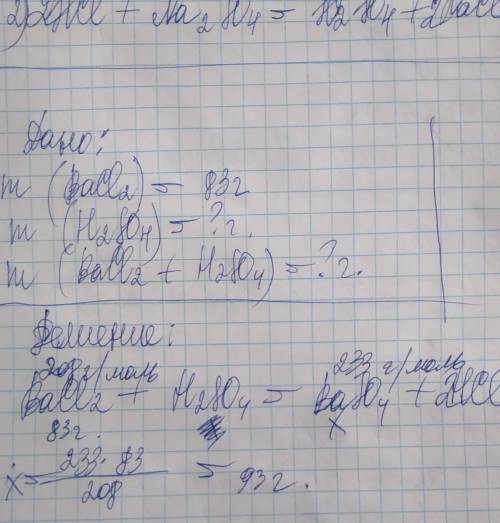 2HCl + Na2SO4 = H2SO4 + 2NaCl
Дано:
m (BaCl2) = 83г
m (H2SO4) = ? г.
m (BaCl2 + H2SO4) = ? г.
Решение:
208 г/моль 233 г/моль
BaCl2 + H2SO4 = BaSO4 + 2HCl
83г. x
x = 233 · 83 / 208 = 93 г.